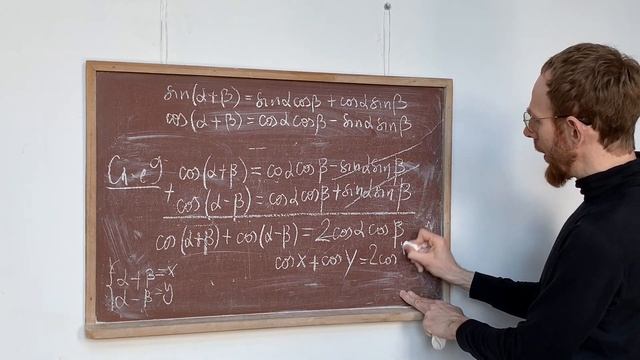 sin(α+β)=sinαcosβ+cosαsinβ
cos(α+β)=cosαcosβ-sinαsinβ
cos(α+β)=cosαcosβ-sinαsinβ
+
cos(α-β)=cosαcosβ+sinαsinβ
cos(α+β)+cos(α-β)=2cosαcosβ
cosx+cosy=2cos
{α+β=x
α-β=y